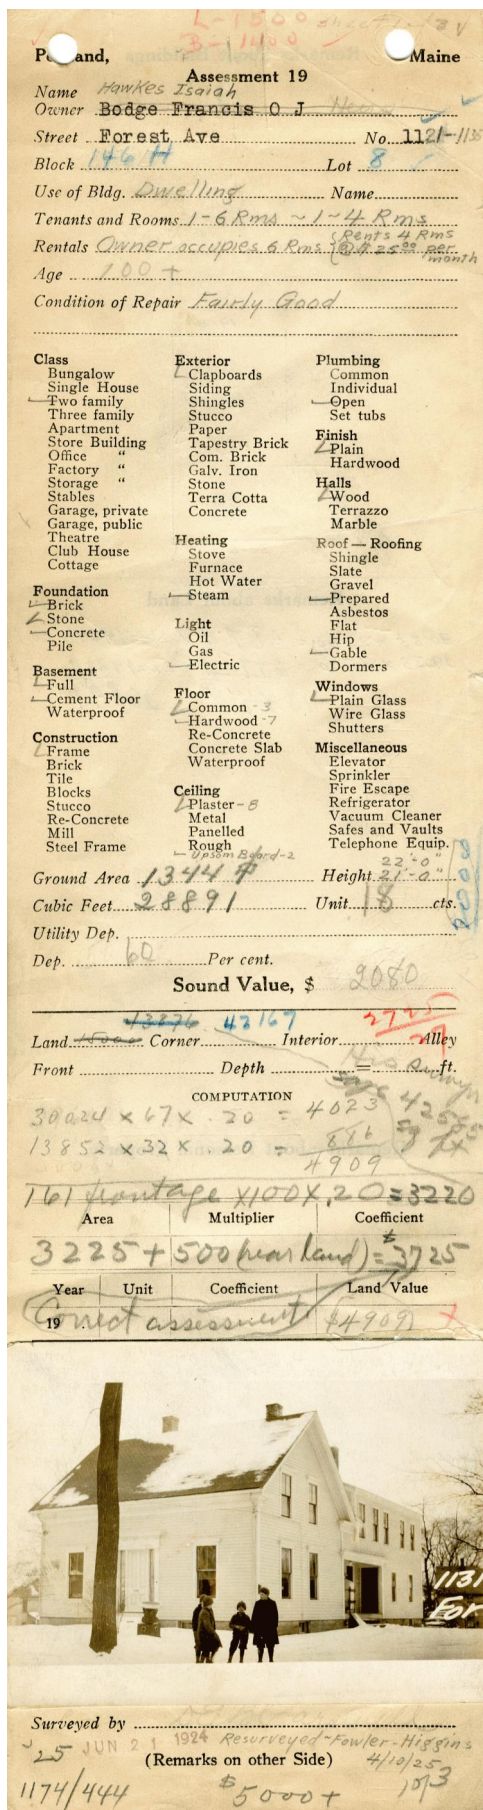 L-1500 sheet 1 of 3
B-1400
Portland, Maine
Assessment 19
Name Hawkes Isaiah
Owner Bodge Francis O J
Street Forest Ave No. 1121-1135
Block 146 H Lot 8
Use of Bldg. Dwelling Name
Tenants and Rooms 1-6 Rms ~ 1-4 Rms
Rentals Owner occupies 6 Rms (Rents 4 Rms @ $25.00 per month
Age 100+
Condition of Repair Fairly Good
Class
Bungalow
Single House
Two family
Three family
Apartment
Store Building
Office "
Factory "
Storage "
Stables
Garage, private
Garage, public
Theatre
Club House
Cottage
Foundation
Brick
Stone
Concrete
Pile
Basement
Full
Cement Floor
Waterproof
Construction
Frame
Brick
Tile
Blocks
Stucco
Re-Concrete
Mill
Steel Frame
Exterior
Clapboards
Siding
Shingles
Stucco
Paper
Tapestry Brick
Com. Brick
Galv. Iron
Stone
Terra Cotta
Concrete
Heating
Stove
Furnace
Hot Water
Steam
Light
Oil
Gas
Electric
Floor
Common - 3
Hardwood - 7
Re-Concrete
Concrete Slab
Waterproof
Ceiling
Plaster - 8
Metal
Panelled
Rough
Upsom Board - 2
Plumbing
Common
Individual
Open
Set tubs
Finish
Plain
Hardwood
Halls
Wood
Terrazzo
Marble
Roof — Roofing
Shingle
Slate
Gravel
Prepared
Asbestos
Flat
Hip
Gable
Dormers
Windows
Plain Glass
Wire Glass
Shutters
Miscellaneous
Elevator
Sprinkler
Fire Escape
Refrigerator
Vacuum Cleaner
Safes and Vaults
Telephone Equip.
22'-0"
Ground Area 1344 Height 21'-0"
Cubic Feet 28891 Unit 18 cts.
Utility Dep.
Dep. 60 Per cent.
Sound Value, $ 2080
13876 43167 2725
Land 15000 Corner Interior 27 Alley
Front Depth = ft.
COMPUTATION
30024 x 67 x .20 = 4023
13852 x 32 x .20 = 886
4909
161 frontage x 100 x .20 = 3220
Area Multiplier Coefficient
3225 + 500 (rear land) = $3725
Year Unit Coefficient Land Value
19 Correct assessment $4909
1131
For
Surveyed by
25 JUN 21 1924 Resurveyed-Fowler-Higgins
(Remarks on other Side) 4/10/25
1174/444 $5000+ 1of3